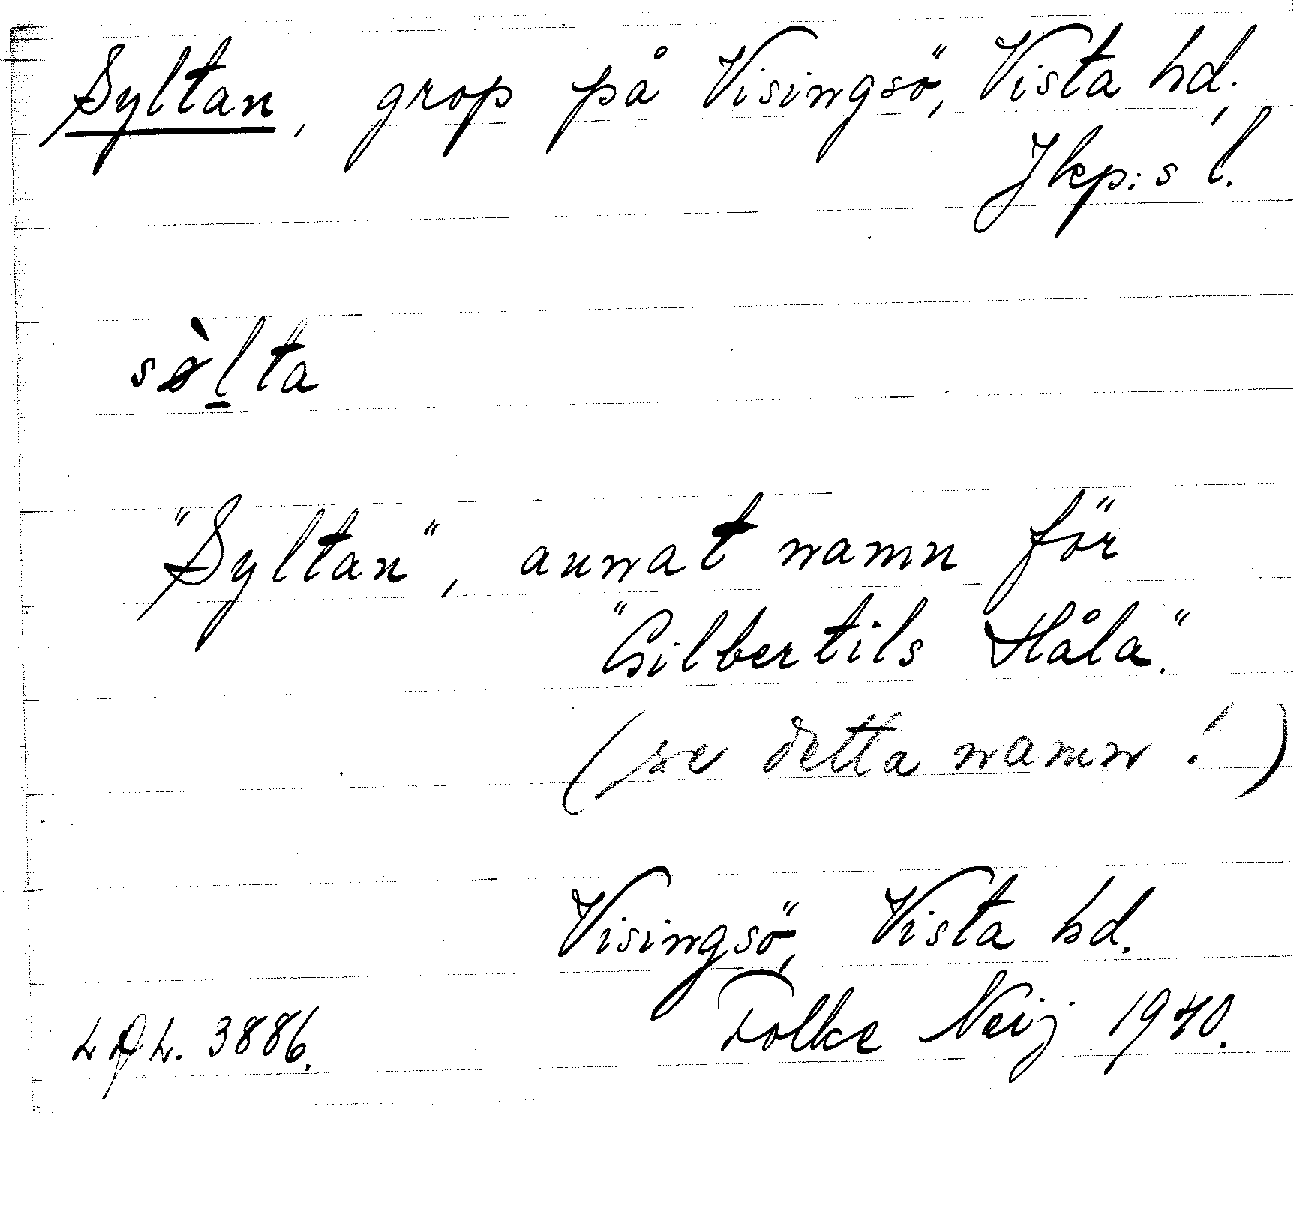 Syltan, grop på Visingsö, Vista hd,
Jkp:s l.
sø̀l̲ta
"Syltan", annat namn för
"Gilbertils Håla".
(se detta namn!)
Visingsö, Vista hd.
Folke Neij 1940.
3886.